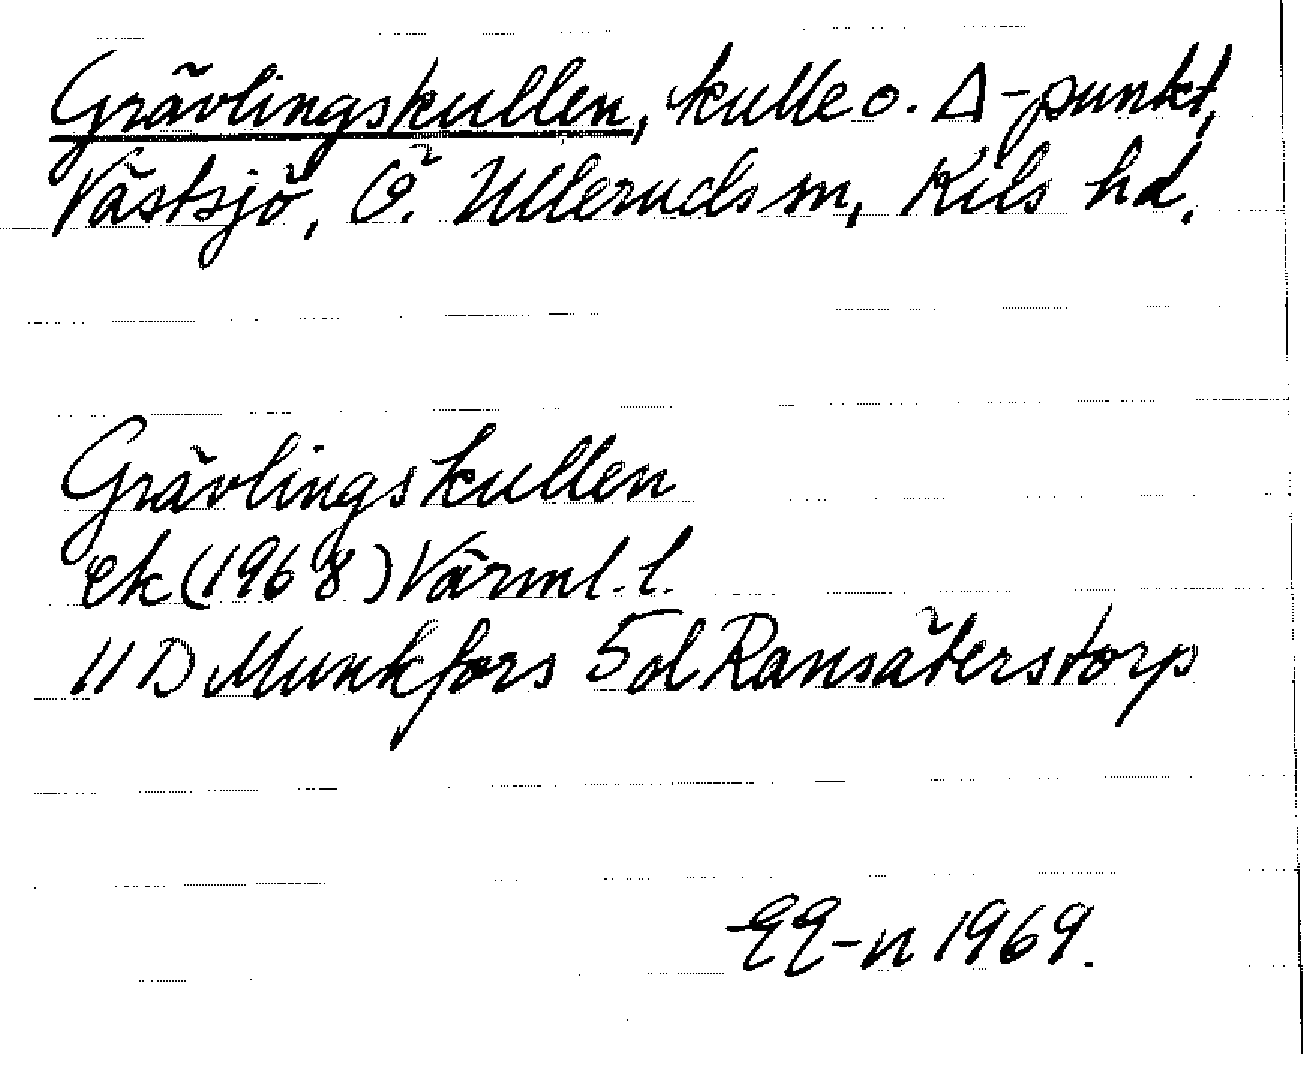 Grävlingskullen, kulle o. Δ-punkt,
Västsjö, Ö. Ulleruds sn, Kils hd.
Grävlingskullen
ek (1968) Värml. l.
11 D Munkfors 5 d Ransäterstorp
EE-n 1969.